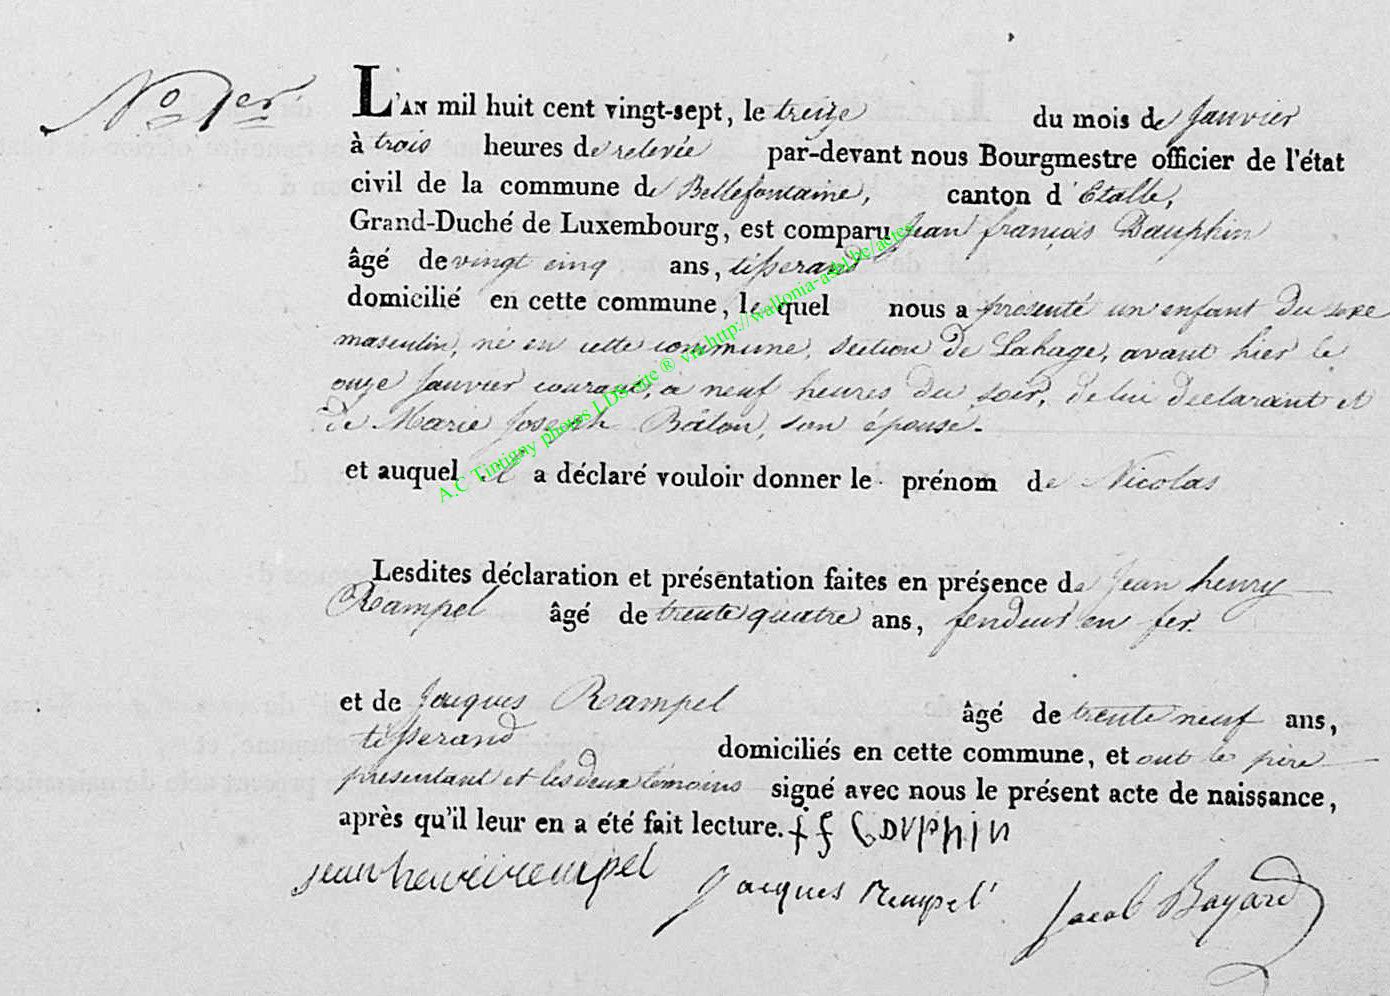 No 1er
L'AN mil huit cent vingt-sept, le treize du mois de Janvier
à trois heures de relevée par-devant nous Bourgmestre officier de l'état
civil de la commune de Bellefontaine, canton d'Etalle,
Grand-Duché de Luxembourg, est comparu Jean françois Dauphin
âgé de vingt cinq ans, tisserand
domicilié en cette commune, le quel nous a présenté un enfant du sexe
masculin, né en cette commune, section de Lahage, avant hier le
onze Janvier courant, à neuf heures du soir, de lui déclarant et
de Marie Joseph Bâlon, son épouse.
et auquel il a déclaré vouloir donner le prénom de Nicolas
Lesdites déclaration et présentation faites en présence de Jean henry
Rampel âgé de trente quatre ans, fendeur en fer.
et de Jacques Rampel âgé de trente neuf ans,
tisserand domiciliés en cette commune, et ont le père
présentant et les deux témoins signé avec nous le présent acte de naissance,
après qu'il leur en a été fait lecture.
jean henri rempel Jacques Rempel Jacob Bayard
A.C Tintigny photos LDS site ® via http://wallonia-asbl.be/actes